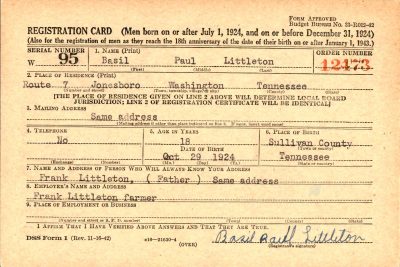 FORM APPROVED
Budget Bureau No. 33-R012-42
REGISTRATION CARD (Men born on or after July 1, 1924, and on or before December 31, 1924)
(Also for the registration of men as they reach the 18th anniversary of the date of their birth on or after January 1, 1943.)
SERIAL NUMBER 1. NAME (Print) ORDER NUMBER
W 95 Basil Paul Littleton 12473
(First) (Middle) (Last)
2. PLACE OF RESIDENCE (Print)
Route 7 Jonesboro Washington Tennessee
[THE PLACE OF RESIDENCE GIVEN ON LINE 2 ABOVE WILL DETERMINE LOCAL BOARD
JURISDICTION; LINE 2 OF REGISTRATION CERTIFICATE WILL BE IDENTICAL]
3. MAILING ADDRESS
Same address
4. TELEPHONE 5. AGE IN YEARS 6. PLACE OF BIRTH
No 18 Sullivan County
DATE OF BIRTH
Oct 29 1924 Tennessee
(Exchange) (Number) (Mo.) (Day) (Yr.) (State or country)
7. NAME AND ADDRESS OF PERSON WHO WILL ALWAYS KNOW YOUR ADDRESS
Frank Littleton, ( Father ) Same address
8. EMPLOYER'S NAME AND ADDRESS
Frank Littleton farmer
9. PLACE OF EMPLOYMENT OR BUSINESS
(Number and street or R. F. D. number) (Town) (County) (State)
I AFFIRM THAT I HAVE VERIFIED ABOVE ANSWERS AND THAT THEY ARE TRUE.
DSS Form 1 (Rev. 11-16-42) (OVER) Basil Paul Littleton
(Registrant's signature)